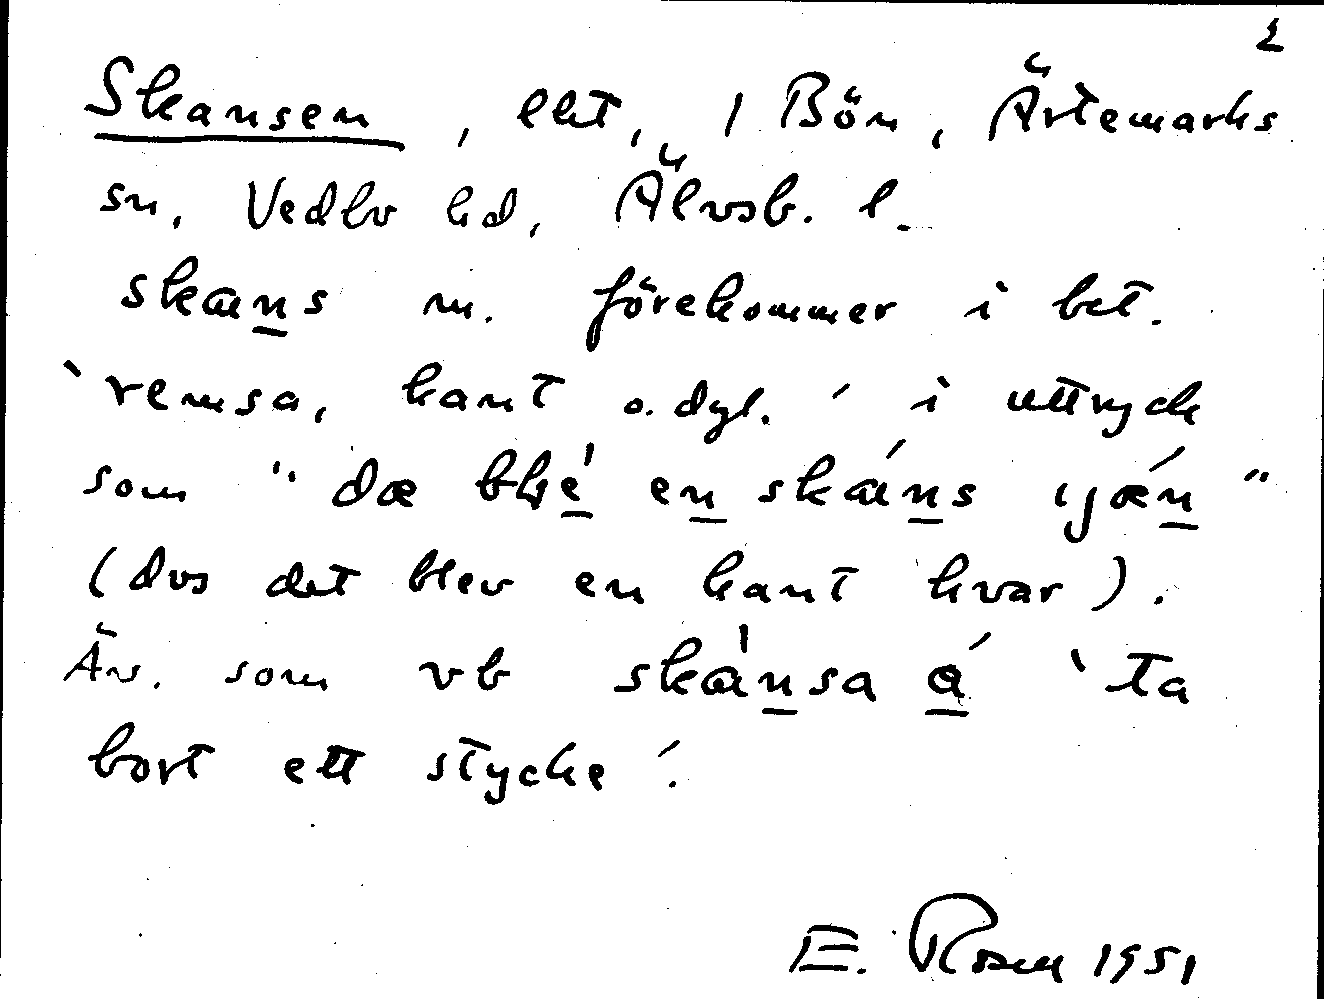 2
Skansen, lht, 1 Bön, Ärtemarks
sn, Vedbo hd, Älvsb. l.
skans m. förekommer i bet.
`remsa, kant o. dyl.´ i uttryck
som "dæ ble en skáns ijæn"
(dvs det blev en kant kvar).
Äv. som vb skánsa á `ta
bort ett stycke´.
E. Rosen 1951